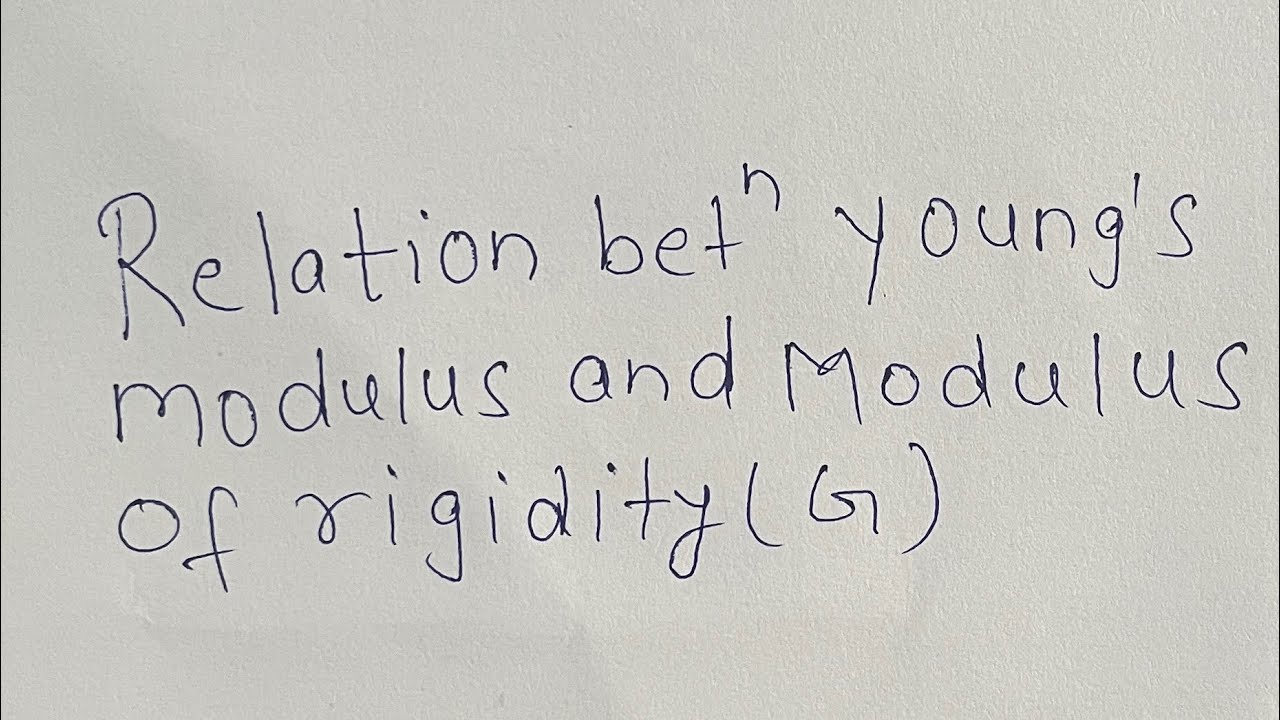 Relation betⁿ young's
modulus and Modulus
of rigidity (G)